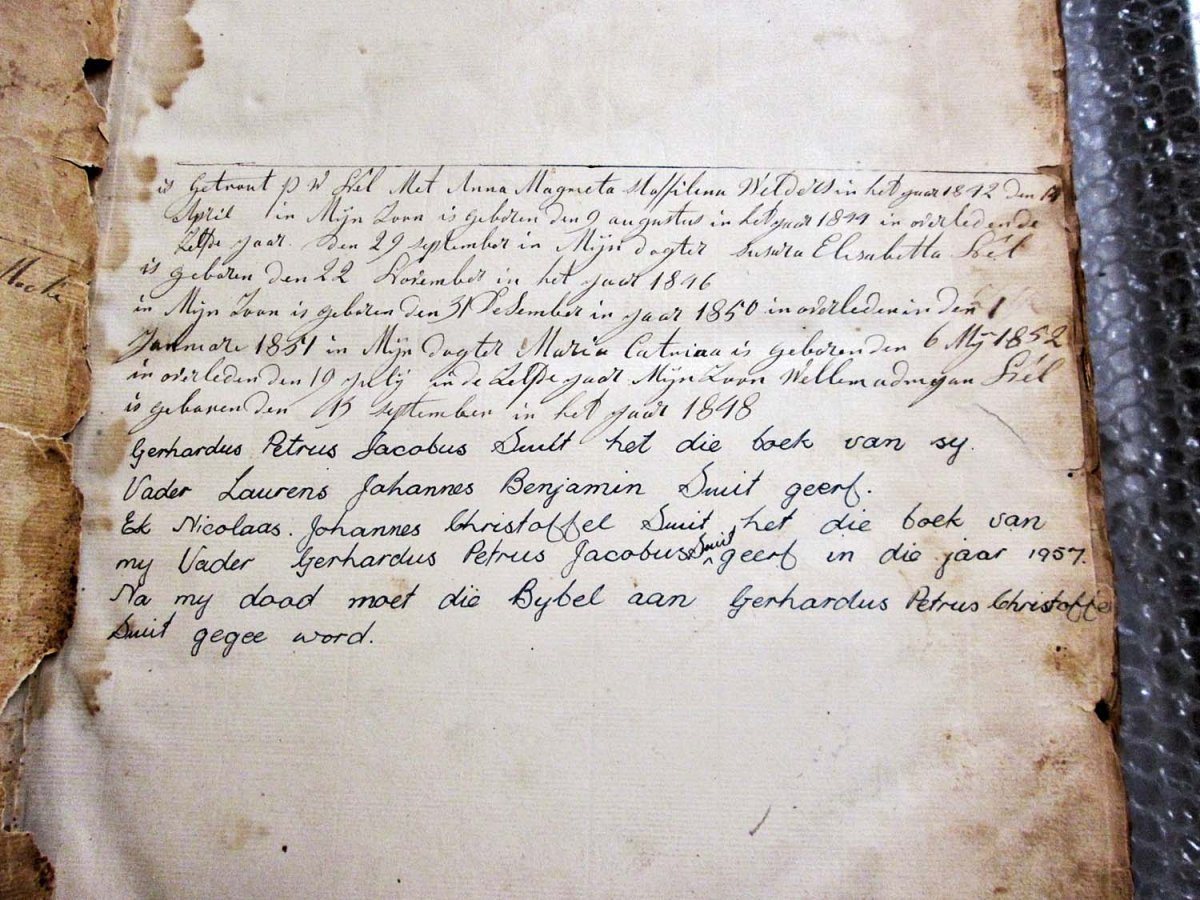 is Getrout p W Stel Met Anna Magreta Welders in het jaar 1842 den 14
April in Mijn Zoon is geboren den 9 augustus in het jaar 1844 in overleden de
Zelfde jaar. den 29 september in Mijn dogter Susara Elisabetta Stel
is geboren den 22 November in het jaar 1846
in Mijn Zoon is geboren den 31 De Sember in jaar 1850 in overleden in den 1
Januware 1851 in Mijn dogter Maria Catriaa is geboren den 6 Mij 1852
in overleden den 19 julij in de Zelfde jaar Mijn Zoon Wellem adreyan Stel
is geboren den 15 september in het jaar 1848
Gerhardus Petrus Jacobus Smit het die boek van sy.
Vader Laurens Johannes Benjamin Smit geerf.
Ek Nicolaas. Johannes Christoffel Smit het die boek van
my Vader Gerhardus Petrus Jacobus Smit geerf in die jaar 1957.
Na my dood moet die Bybel aan Gerhardus Petrus Christoffel
Smit gegee word.